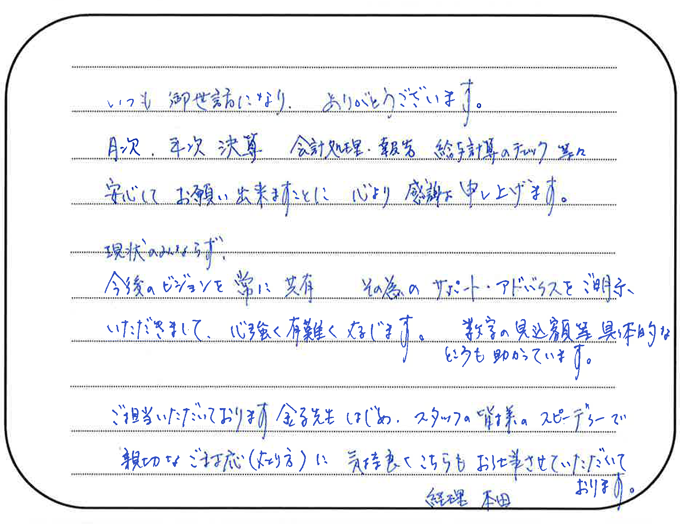 いつも 御世話になり、 ありがとうございます。
月次、年次 決算 会計処理・報告 給与計算のチェック 等々
安心して お願い出来ますことに 心より 感謝 申し上げます。
現状のみならず、
今後のビジョンを 常に 共有 その為の サポート・アドバイスを ご明示、
いただきまして、心強く 有難く 存じます。 数字の見込額等 具体的な
ところも 助かっています。
ご担当いただいております 金子先生 はじめ、スタッフの皆様の スピーディーで
親切な ご対応(やり方)に 気持良く こちらも お仕事させていただいて
おります。
経理 本田